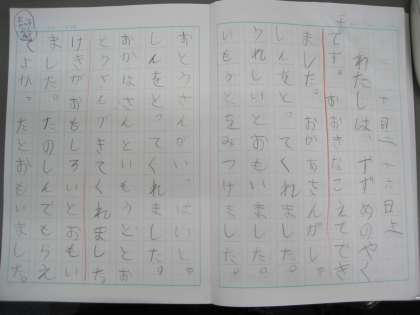 十一月二十六日土
わたしは、すずめのやく
をです。おおきなこえででき
ました。おかあさんがしゃ
しんをとってくれました。
うれしいとおもいました。
いもうとをみつけました。
おとうさんがいっぱいしゃ
しんをとってくれました。
おかはさんといもうととお
とうさんがきてくれました
けきがおもしろいとおもい
ました。たのしんでもらえ
てよかったとおもいました。